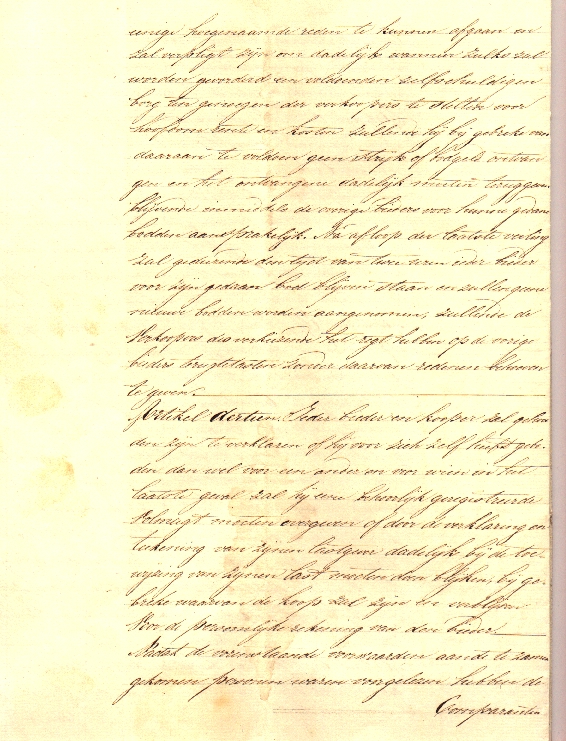 eenige hoegenaamde reden te kunnen afgaan en
zal verpligt zijn om dadelijk wanneer zulks zal
worden gevorderd een voldoenden zelfschuldigen
borg ten genoegen der verkoopers te stellen voor
hoofdsom rente en kosten zullende hij bij gebreke van
daaraan te voldoen geen strijk of hoogels ontvan
gen en het ontvangene dadelijk moeten teruggeven
blijvende inmiddels de overige bieders voor hunne gedane
boden aansprakelijk. Na afloop der laatste veiling
zal gedurende den tijd van twee uren ieder bieder
voor zijn gedaan bod blijven staan en zullen geene
nieuwe boden worden aangenomen, zullende de
Verkoopers des verkiezende het regt hebben op de vorige
bieders terugtetasten zonder daarvan redenen behoeven
te geven.
Artikel dertien. Ieder bieder en kooper zal gehou
den zijn te verklaren of hij voor zich zelf heeft gebo-
den dan wel voor een ander en voor wien in het
laatste geval zal hij eene behoorlijk geregistreerde
Volmagt moeten overgeven of door de verklaring en
teekening van zijnen lastgever dadelijk bij de toe-
wijzing van zijnen last moeten doen blijken, bij ge-
breke waarvan de koop zal zijn en verblijven
Voor de persoonlijke rekening van den bieder.
Nadat de vorenstaande voorwaarden aan de te zamen
gekomen personen waren voorgelezen hebben de
Comparanten